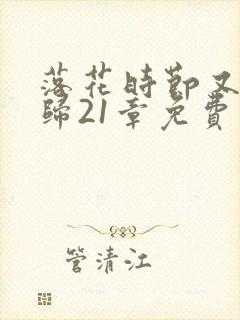 落花時節又
歸21章免費
管清江